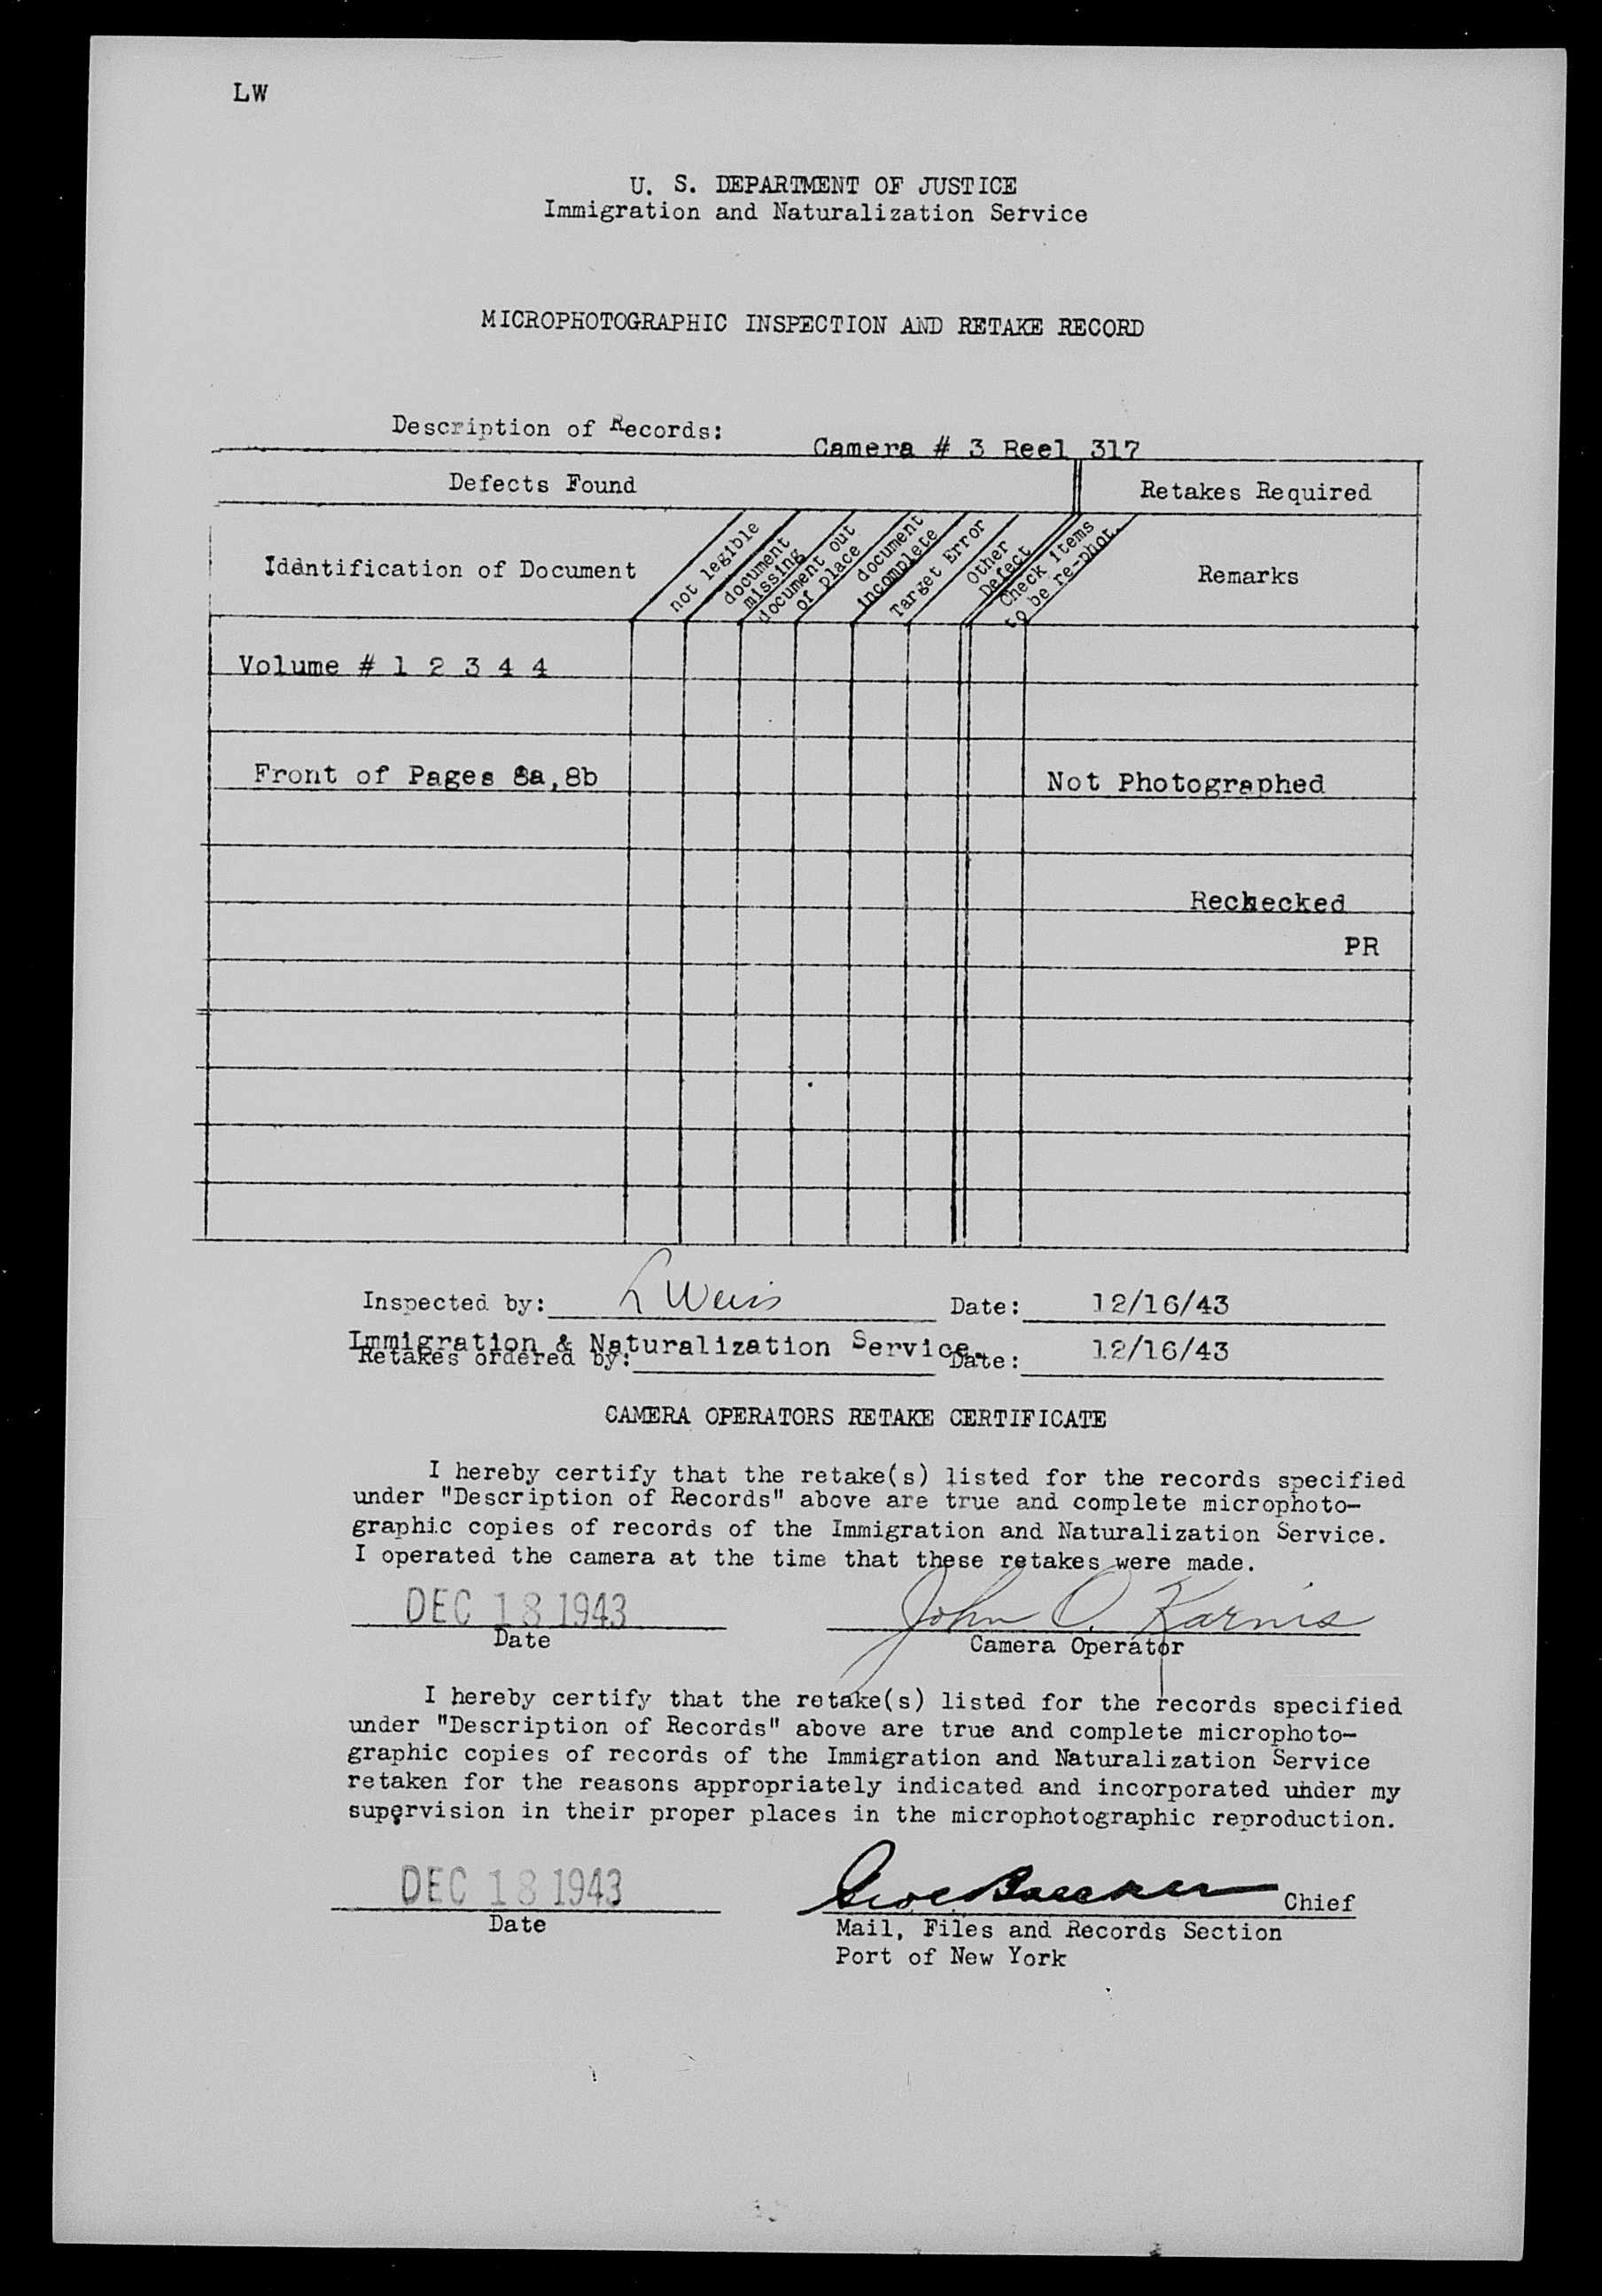 LW
U. S. DEPARTMENT OF JUSTICE
Immigration and Naturalization Service
MICROPHOTOGRAPHIC INSPECTION AND RETAKE RECORD
Description of Records: Camera # 3 Reel 317
Defects Found Retakes Required
Identification of Document
not legible
document missing
document out of place
document incomplete
Target Error
Other Defect
Check items to be re-phot.
Remarks
Volume # 1 2 3 4 4
Front of Pages 8a,8b Not Photographed
Rechecked
PR
Inspected by: L Weis Date: 12/16/43
Immigration & Naturalization Service.
Retakes ordered by: Date: 12/16/43
CAMERA OPERATORS RETAKE CERTIFICATE
I hereby certify that the retake(s) listed for the records specified
under "Description of Records" above are true and complete microphoto-
graphic copies of records of the Immigration and Naturalization Service.
I operated the camera at the time that these retakes were made.
DEC 18 1943 John O. Karnis
Date Camera Operator
I hereby certify that the retake(s) listed for the records specified
under "Description of Records" above are true and complete microphoto-
graphic copies of records of the Immigration and Naturalization Service
retaken for the reasons appropriately indicated and incorporated under my
supervision in their proper places in the microphotographic reproduction.
DEC 18 1943 Chief
Date Mail, Files and Records Section
Port of New York